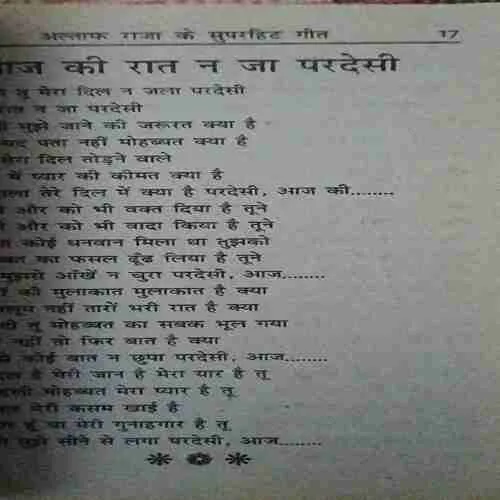 अल्ताफ राजा के सुपरहिट गीत 17
की रात न जा परदेसी
तू मेरा दिल न जला परदेसी
न जा परदेसी
मुझे जाने की जरूरत क्या है
पता नहीं मोहब्बत क्या है
मेरा दिल तोड़ने वाले
में प्यार की कीमत क्या है
तेरे दिल में क्या है परदेसी, आज की........
और को भी वक्त दिया है तूने
और को भी वादा किया है तूने
कोई धनवान मिला था तुझको
का फसल ढूँढ लिया है तूने
मुझसे आँखें न चुरा परदेसी, आज........
की मुलाकात मुलाकात है क्या
नहीं तारों भरी रात है क्या
तू मोहब्बत का सबक भूल गया
नहीं तो फिर बात है क्या
कोई बात न छुपा परदेसी, आज........
है मेरी जान है मेरा यार है तू
मोहब्बत मेरा प्यार है तू
मेरी कसम खाई है
हूं या मेरी गुनाहगार है तू
सीने से लगा परदेसी, आज........